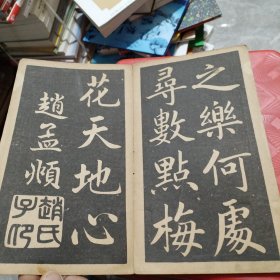 之樂何處
尋數點梅
花天地心
趙孟頫
趙氏
子印